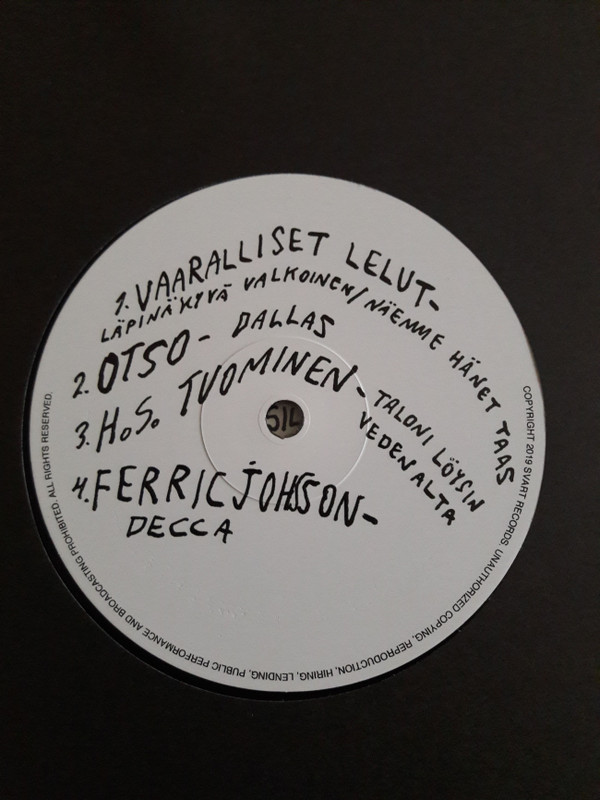 1. VAARALLISET LELUT-
LÄPINÄKYVÄ VALKOINEN/NÄEMME HÄNET TAAS
2. OTSO - DALLAS
3. H.S. TUOMINEN - TALONI LÖYSIN
VEDEN ALTA
4. FERRIC JOHSSON-
DECCA
COPYRIGHT 2019 SVART RECORDS. UNAUTHORIZED COPYING, REPRODUCTION, HIRING, LENDING, PUBLIC PERFORMANCE AND BROADCASTING PROHIBITED. ALL RIGHTS RESERVED.